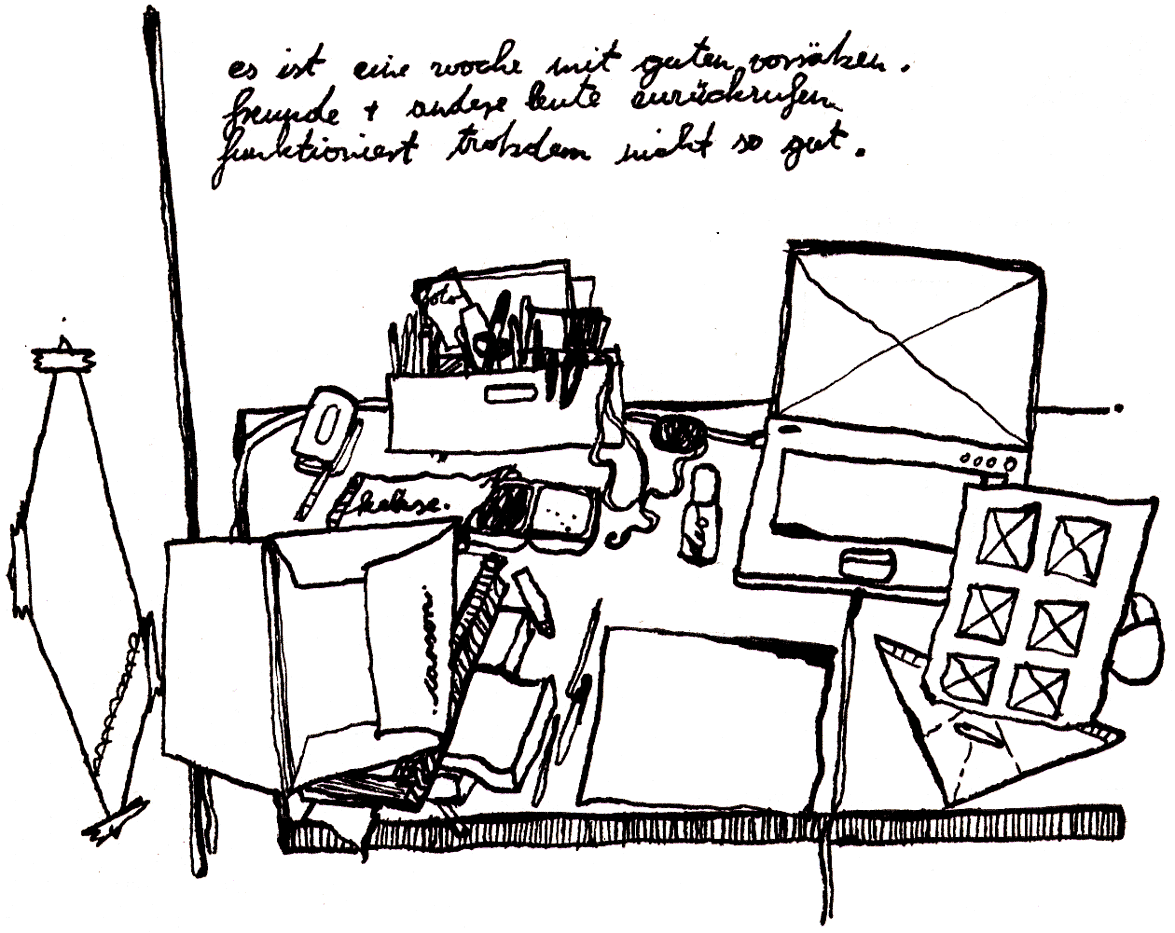 es ist eine woche mit guten vorsätzen.
freunde + andere leute zurückrufen
funktioniert trotzdem nicht so gut.
foto
kekse.
canson.